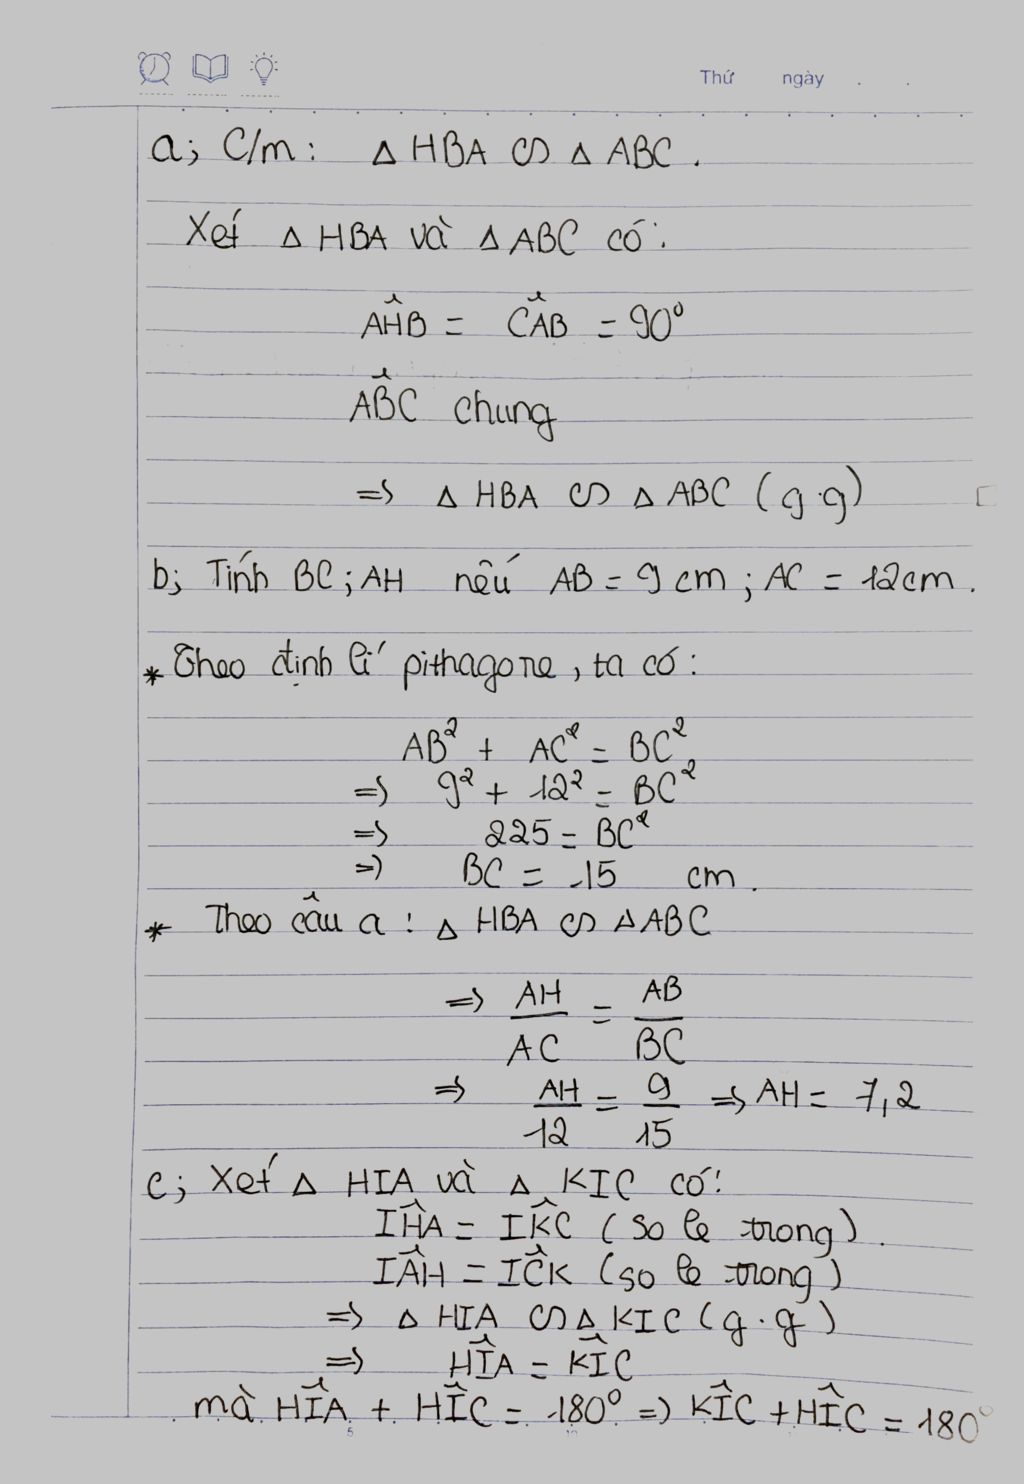 Thứ ngày . .
a; C/m: Δ HBA ∽ Δ ABC.
Xét Δ HBA và Δ ABC có:
AĤB = CÂB = 90⁰
AB̂C chung
=> Δ HBA ∽ Δ ABC (g.g)
b; Tính BC; AH nếu AB = 9 cm; AC = 12cm.
* Theo định lí pithagore, ta có:
AB² + AC² = BC²
=> 9² + 12² = BC²
=> 225 = BC²
=> BC = 15 cm.
* Theo câu a: Δ HBA ∽ Δ ABC
=> AH/AC = AB/BC
=> AH/12 = 9/15 => AH = 7,2
c; Xét Δ HIA và Δ KIC có:
IĤA = IK̂C (so le trong).
IÂH = IĈK (so le trong)
=> Δ HIA ∽ Δ KIC (g.g)
=> HÎA = KÎC
mà HÎA + HÎC = 180⁰ => KÎC + HÎC = 180⁰